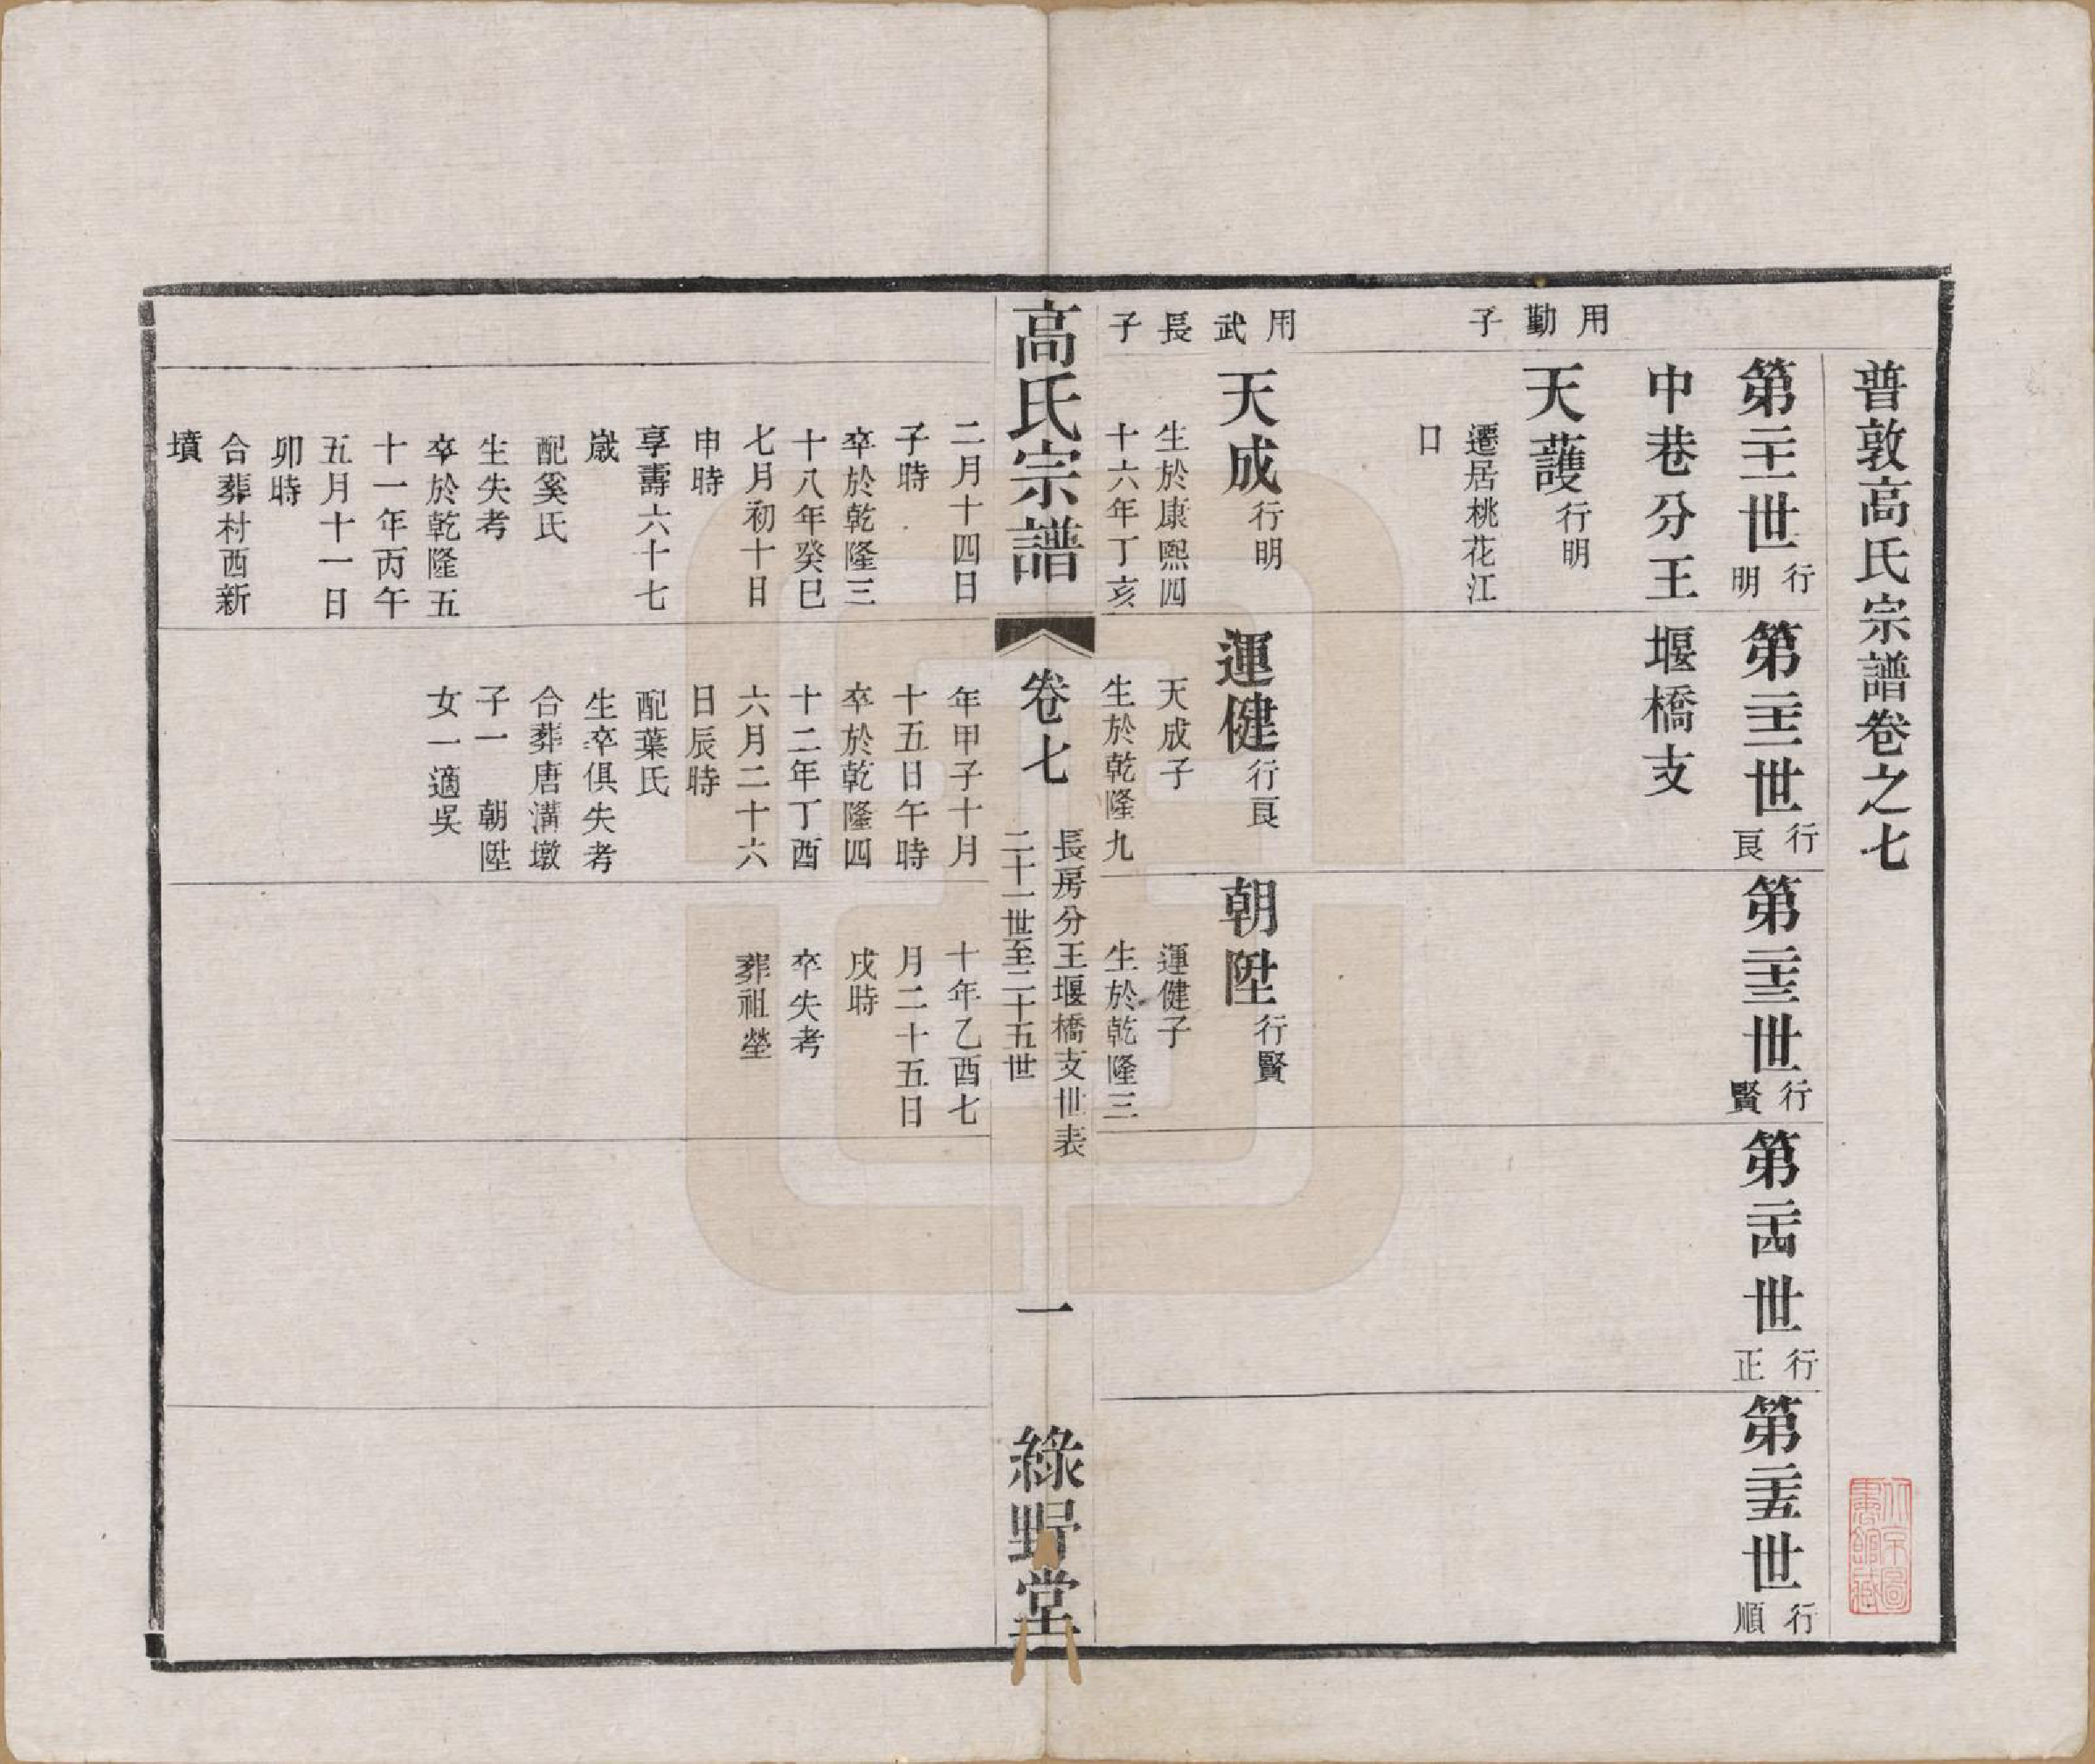 普敦高氏宗譜卷之七
第二十一世 行明
第二十二世 行良
第二十三世 行賢
第二十四世 行正
第二十五世 行順
中巷分王堰橋支
用勤子
天護 行明
遷居桃花江
口
用武長子
天成 行明
生於康熙四
十六年丁亥
運健 行良
天成子
生於乾隆九
朝陞 行賢
運健子
生於乾隆三
高氏宗譜
卷七
長房分王堰橋支世表
二十一世至二十五世
一
綠野堂
二月十四日
子時
卒於乾隆三
十八年癸巳
七月初十日
申時
享壽六十七
歲
配奚氏
生失考
卒於乾隆五
十一年丙午
五月十一日
卯時
合葬村西新
墳
年甲子十月
十五日午時
卒於乾隆四
十二年丁酉
六月二十六
日辰時
配葉氏
生卒俱失考
合葬唐溝墩
子一 朝陞
女一適吳
十年乙酉七
月二十五日
戌時
卒失考
葬祖塋